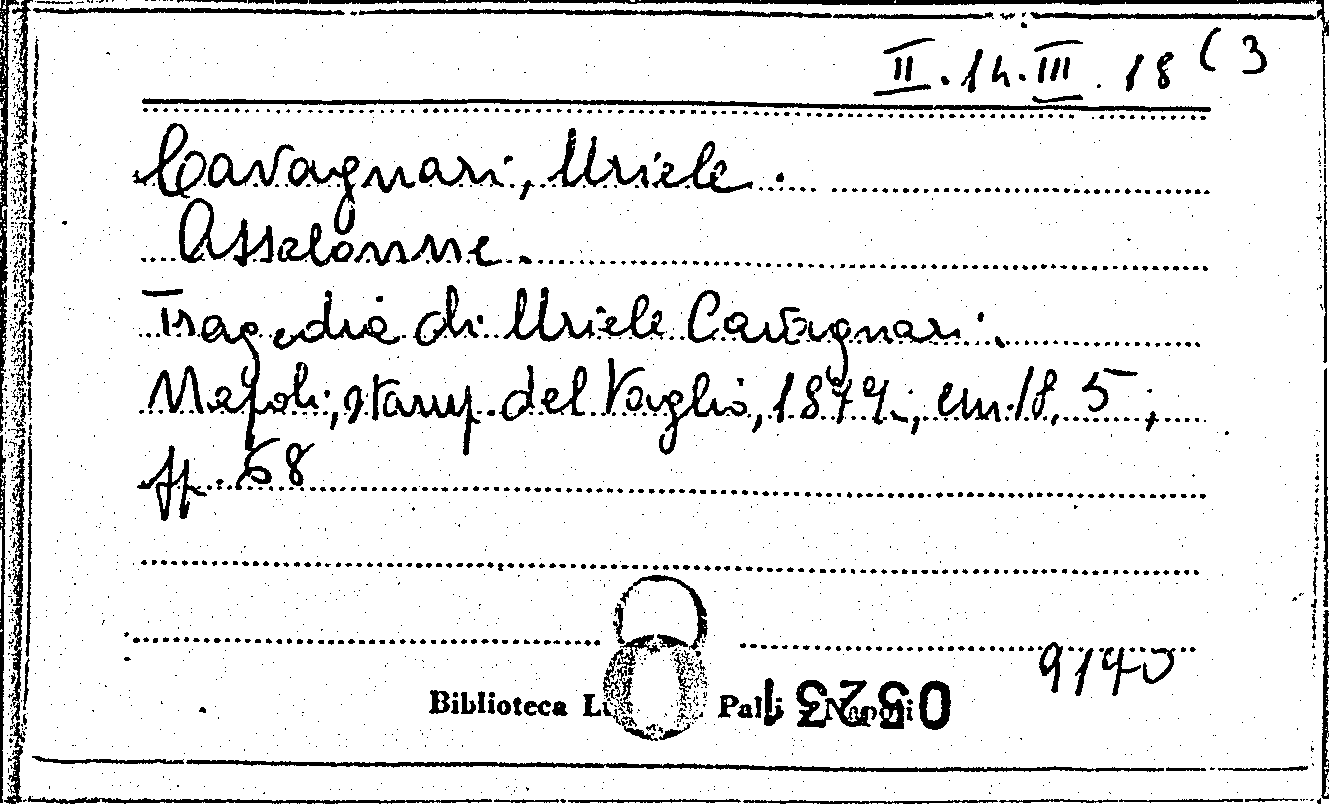 II.14.III.18(3
Cavagnari, Uriele.
Assalonne.
Tragedia di Uriele Cavagnari.
Napoli, stamp. del Vaglio, 1874, cm. 18,5;
pp. 68
9140
Biblioteca